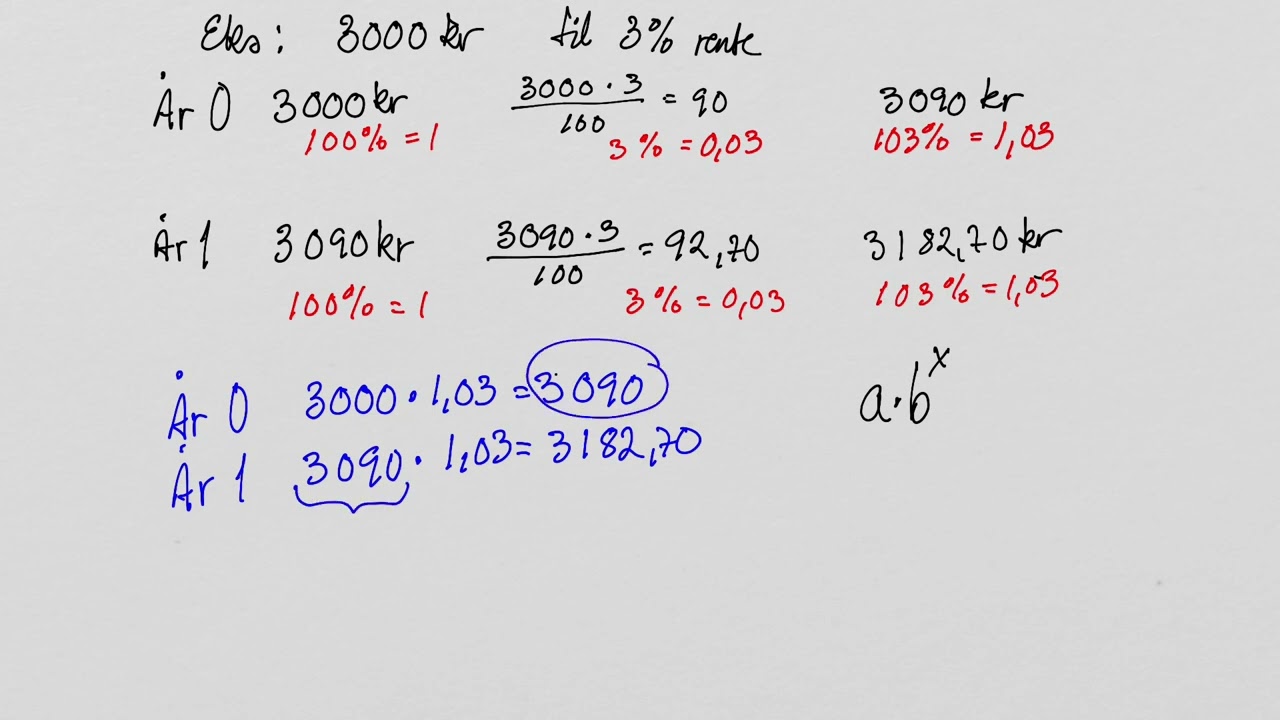 Eks: 3000 kr til 3% rente
År 0 3000 kr 3000 · 3 / 100 = 90 3090 kr
100% = 1 3% = 0,03 103% = 1,03
År 1 3090 kr 3090 · 3 / 100 = 92,70 3182,70 kr
100% = 1 3% = 0,03 103% = 1,03
År 0 3000 · 1,03 = 3090
a·b^x
År 1 3090 · 1,03 = 3182,70